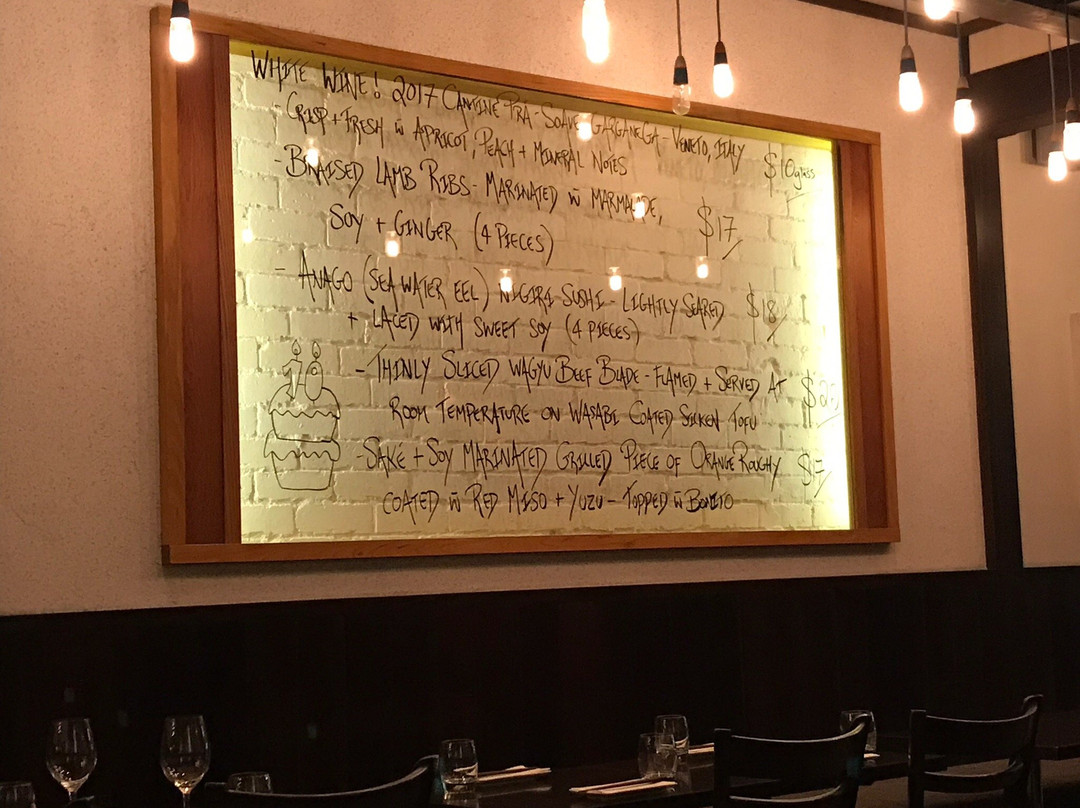 WHITE WINE! 2017 CANTINE PRA - SOAVE GARGANEGA - VENETO, ITALY
- CRISP + FRESH w̄ APRICOT, PEACH + MINERAL NOTES $10 glass
- BRAISED LAMB RIBS - MARINATED w̄ MARMALADE,
SOY + GINGER (4 PIECES) $17
- ANAGO (SEA WATER EEL) NIGIRI SUSHI - LIGHTLY SEARED $18
+ LACED WITH SWEET SOY (4 PIECES)
- THINLY SLICED WAGYU BEEF BLADE - FLAMED + SERVED AT
ROOM TEMPERATURE ON WASABI COATED SILKEN TOFU
- SAKE + SOY MARINATED GRILLED PIECE OF ORANGE ROUGHY $17
COATED w̄ RED MISO + YUZU - TOPPED w̄ BONITO
10